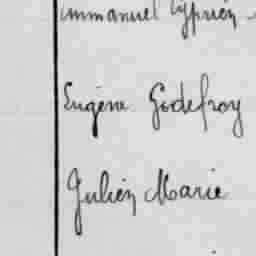 Emmanuel Cyprien
Eugène Godefroy
Julien Marie